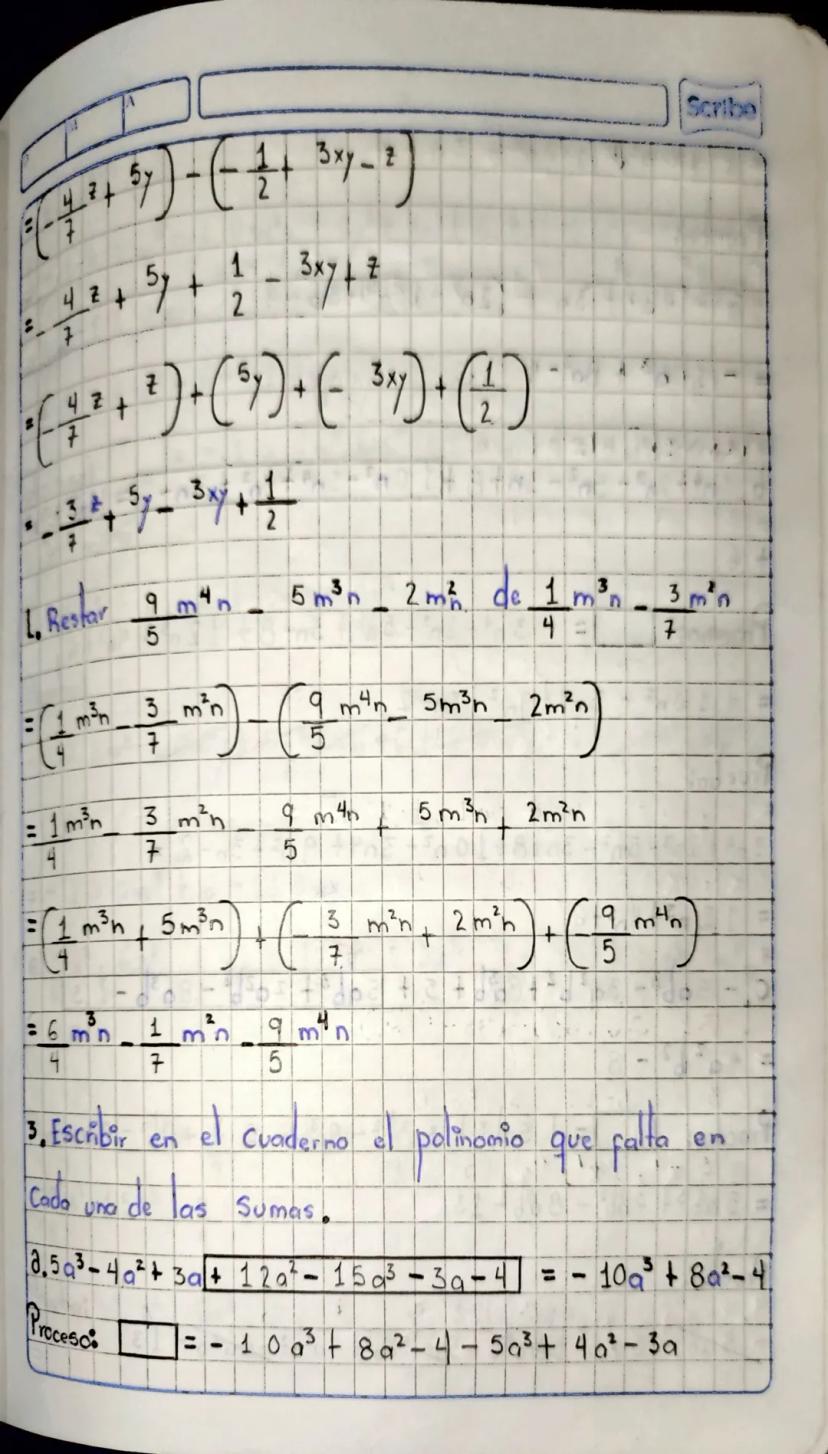 Scribe
= (-4/7 z + 5y) - (-1/2 + 3xy - z)
= -4/7 z + 5y + 1/2 - 3xy + z
= (-4/7 z + z) + (5y) + (- 3xy) + (1/2)
= -3/7 z + 5y - 3xy + 1/2
l. Restar 9/5 m⁴n - 5m³n - 2m²n de 1/4 m³n - 3/7 m²n
= (1/4 m³n - 3/7 m²n) - (9/5 m⁴n - 5m³n - 2m²n)
= 1/4 m³n - 3/7 m²n - 9/5 m⁴n + 5m³n + 2m²n
= (1/4 m³n + 5m³n) + (-3/7 m²n + 2m²n) + (-9/5 m⁴n)
= 6/4 m³n - 1/7 m²n - 9/5 m⁴n
3. Escribir en el cuaderno el polinomio que falta en
Cada una de las sumas.
a. 5a³ - 4a² + 3a + 12a² - 15a³ - 3a - 4 = - 10a³ + 8a² - 4
Proceso: = - 10a³ + 8a² - 4 - 5a³ + 4a² - 3a